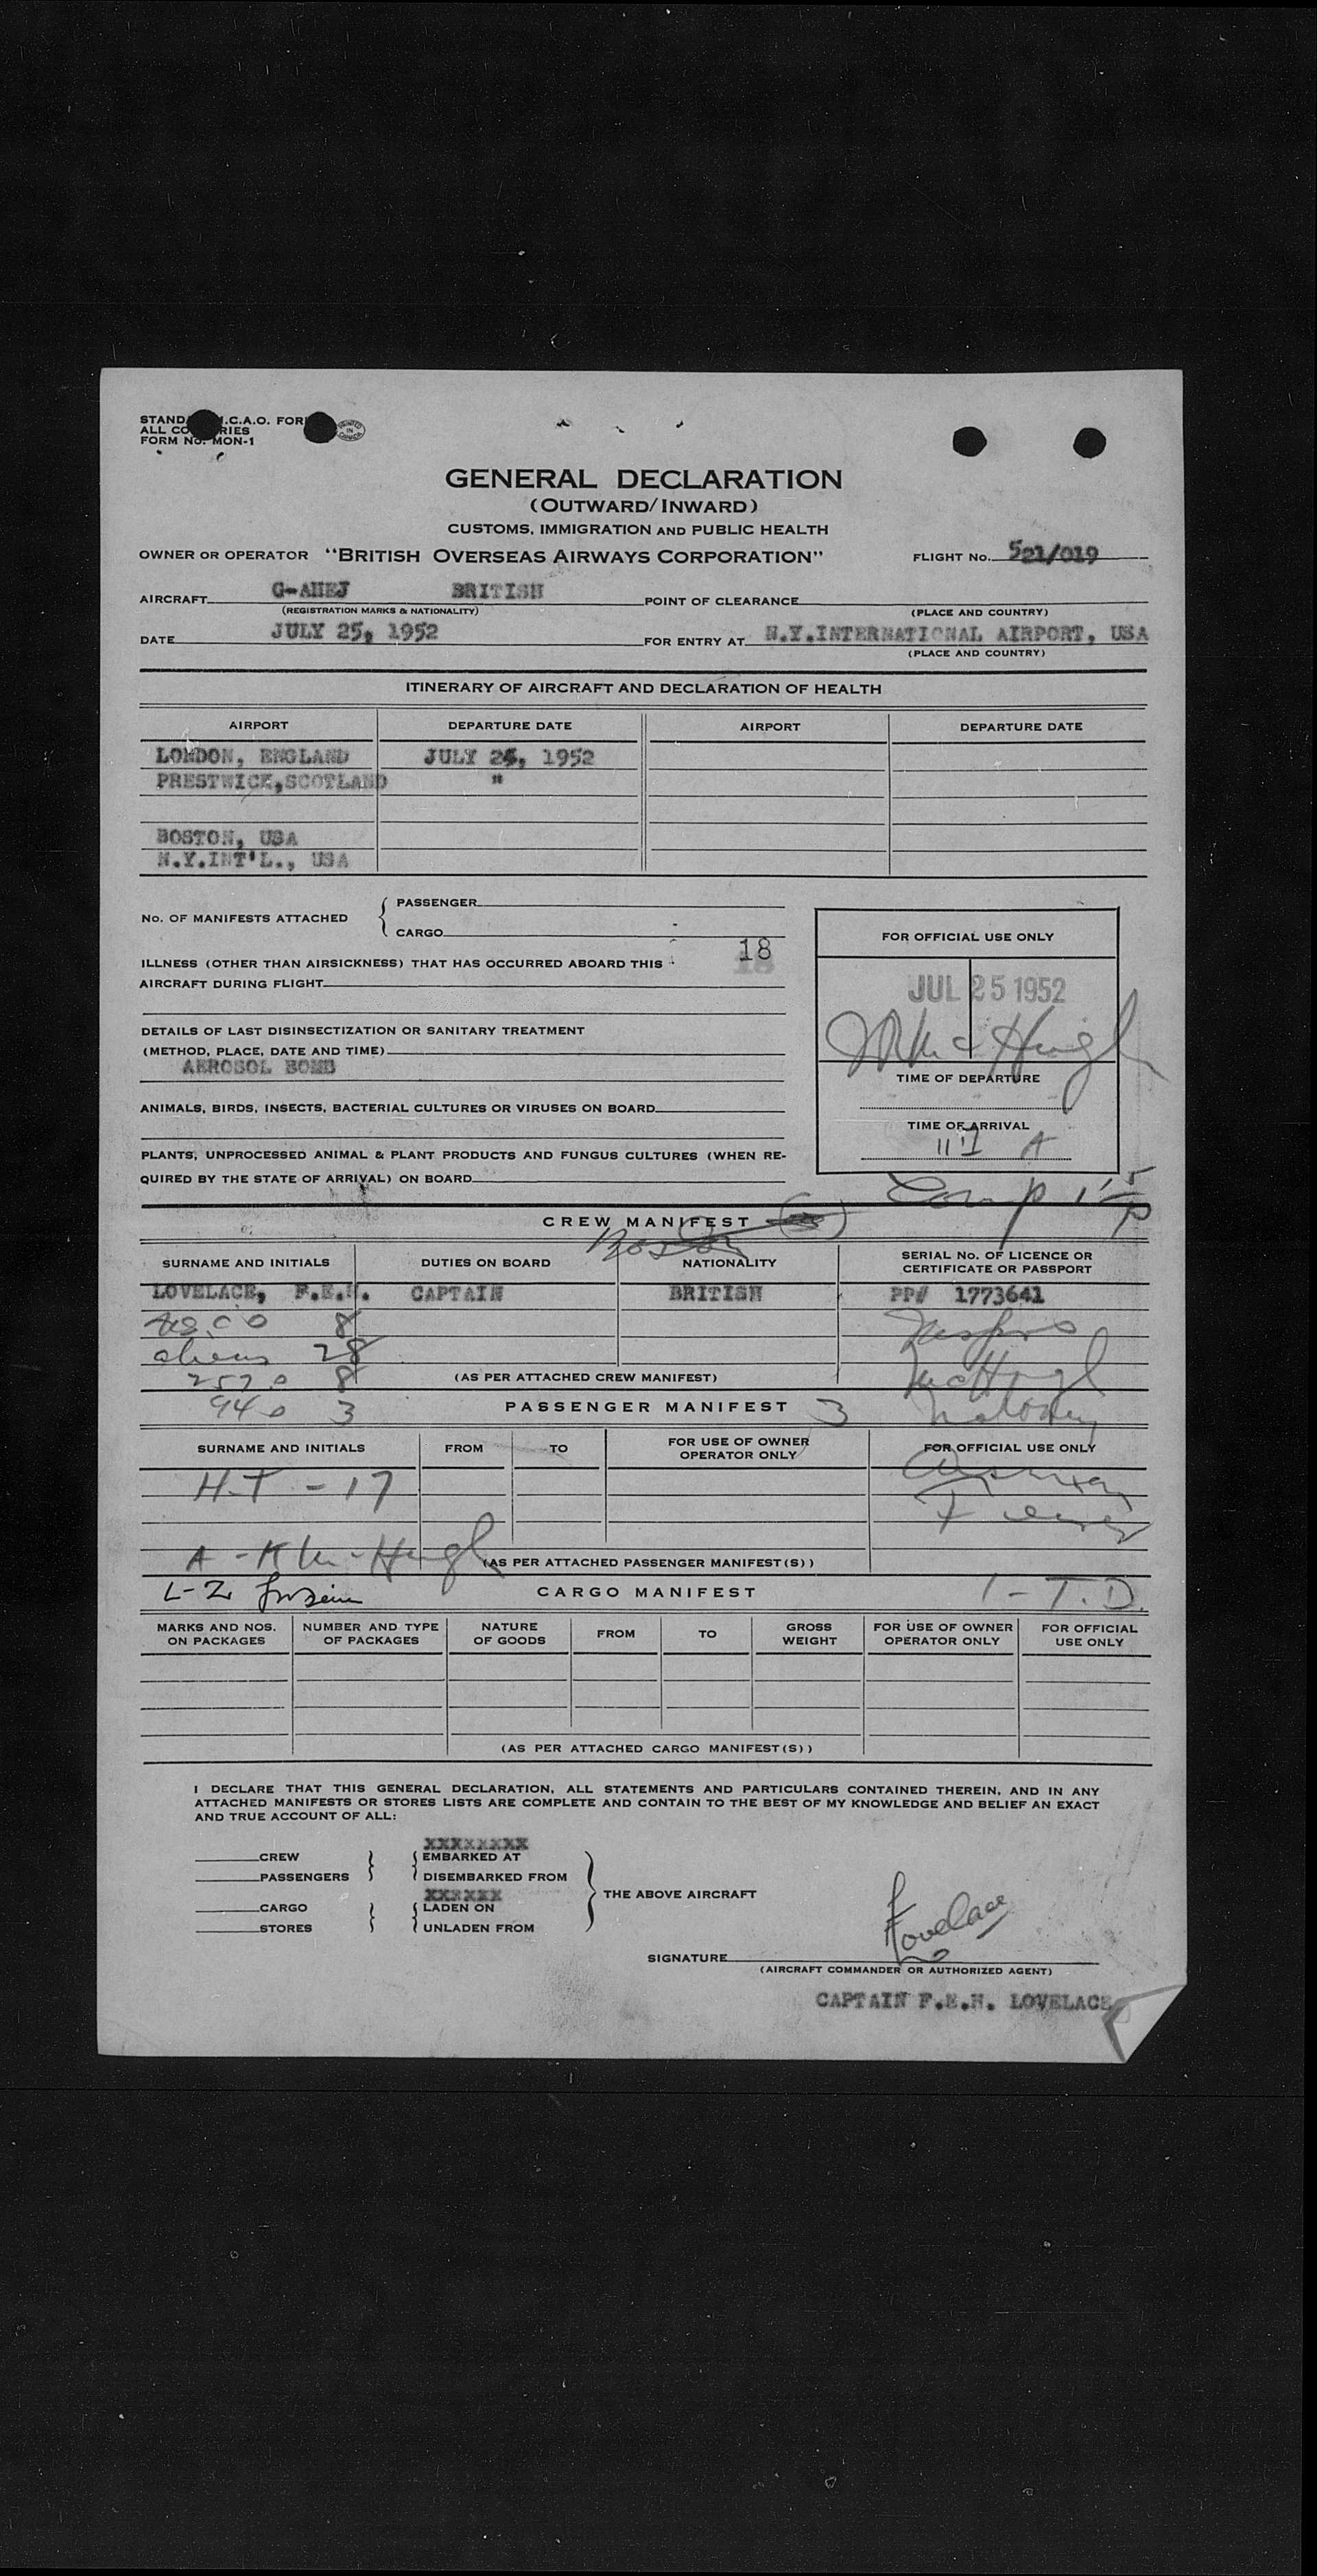 STAND I.C.A.O. FOR
ALL CO RIES
FORM No. MON-1
PRINTED IN CANADA
GENERAL DECLARATION
(OUTWARD/INWARD)
CUSTOMS, IMMIGRATION AND PUBLIC HEALTH
OWNER OR OPERATOR "BRITISH OVERSEAS AIRWAYS CORPORATION" FLIGHT No. 521/019
AIRCRAFT G-AHEJ BRITISH POINT OF CLEARANCE
(REGISTRATION MARKS & NATIONALITY) (PLACE AND COUNTRY)
DATE JULY 25, 1952 FOR ENTRY AT N.Y.INTERNATIONAL AIRPORT, USA
(PLACE AND COUNTRY)
ITINERARY OF AIRCRAFT AND DECLARATION OF HEALTH
AIRPORT DEPARTURE DATE AIRPORT DEPARTURE DATE
LONDON, ENGLAND JULY 24, 1952
PRESTWICK,SCOTLAND "
BOSTON, USA
N.Y.INT'L., USA
No. OF MANIFESTS ATTACHED { PASSENGER
CARGO
FOR OFFICIAL USE ONLY
18
ILLNESS (OTHER THAN AIRSICKNESS) THAT HAS OCCURRED ABOARD THIS
AIRCRAFT DURING FLIGHT
JUL 25 1952
DETAILS OF LAST DISINSECTIZATION OR SANITARY TREATMENT
(METHOD, PLACE, DATE AND TIME)
AEROSOL BOMB
McHugh
TIME OF DEPARTURE
ANIMALS, BIRDS, INSECTS, BACTERIAL CULTURES OR VIRUSES ON BOARD
TIME OF ARRIVAL
A
PLANTS, UNPROCESSED ANIMAL & PLANT PRODUCTS AND FUNGUS CULTURES (WHEN RE-
QUIRED BY THE STATE OF ARRIVAL) ON BOARD
Comp
CREW MANIFEST
Boston
SURNAME AND INITIALS DUTIES ON BOARD NATIONALITY SERIAL No. OF LICENCE OR
CERTIFICATE OR PASSPORT
LOVELACE, F.E.H. CAPTAIN BRITISH PP# 1773641
8
aliens 28
8 (AS PER ATTACHED CREW MANIFEST) McHugh
940 3 PASSENGER MANIFEST 3 Maloney
SURNAME AND INITIALS FROM TO FOR USE OF OWNER
OPERATOR ONLY FOR OFFICIAL USE ONLY
H.T - 17
A - K McHugh (AS PER ATTACHED PASSENGER MANIFEST(S))
L-2 CARGO MANIFEST 1 - T.D.
MARKS AND NOS.
ON PACKAGES NUMBER AND TYPE
OF PACKAGES NATURE
OF GOODS FROM TO GROSS
WEIGHT FOR USE OF OWNER
OPERATOR ONLY FOR OFFICIAL
USE ONLY
(AS PER ATTACHED CARGO MANIFEST(S))
I DECLARE THAT THIS GENERAL DECLARATION, ALL STATEMENTS AND PARTICULARS CONTAINED THEREIN, AND IN ANY
ATTACHED MANIFESTS OR STORES LISTS ARE COMPLETE AND CONTAIN TO THE BEST OF MY KNOWLEDGE AND BELIEF AN EXACT
AND TRUE ACCOUNT OF ALL:
XXXXXXXX
CREW } { EMBARKED AT
PASSENGERS DISEMBARKED FROM
XXXXXX } THE ABOVE AIRCRAFT
CARGO } { LADEN ON
STORES UNLADEN FROM
Lovelace
SIGNATURE
(AIRCRAFT COMMANDER OR AUTHORIZED AGENT)
CAPTAIN F.E.H. LOVELACE